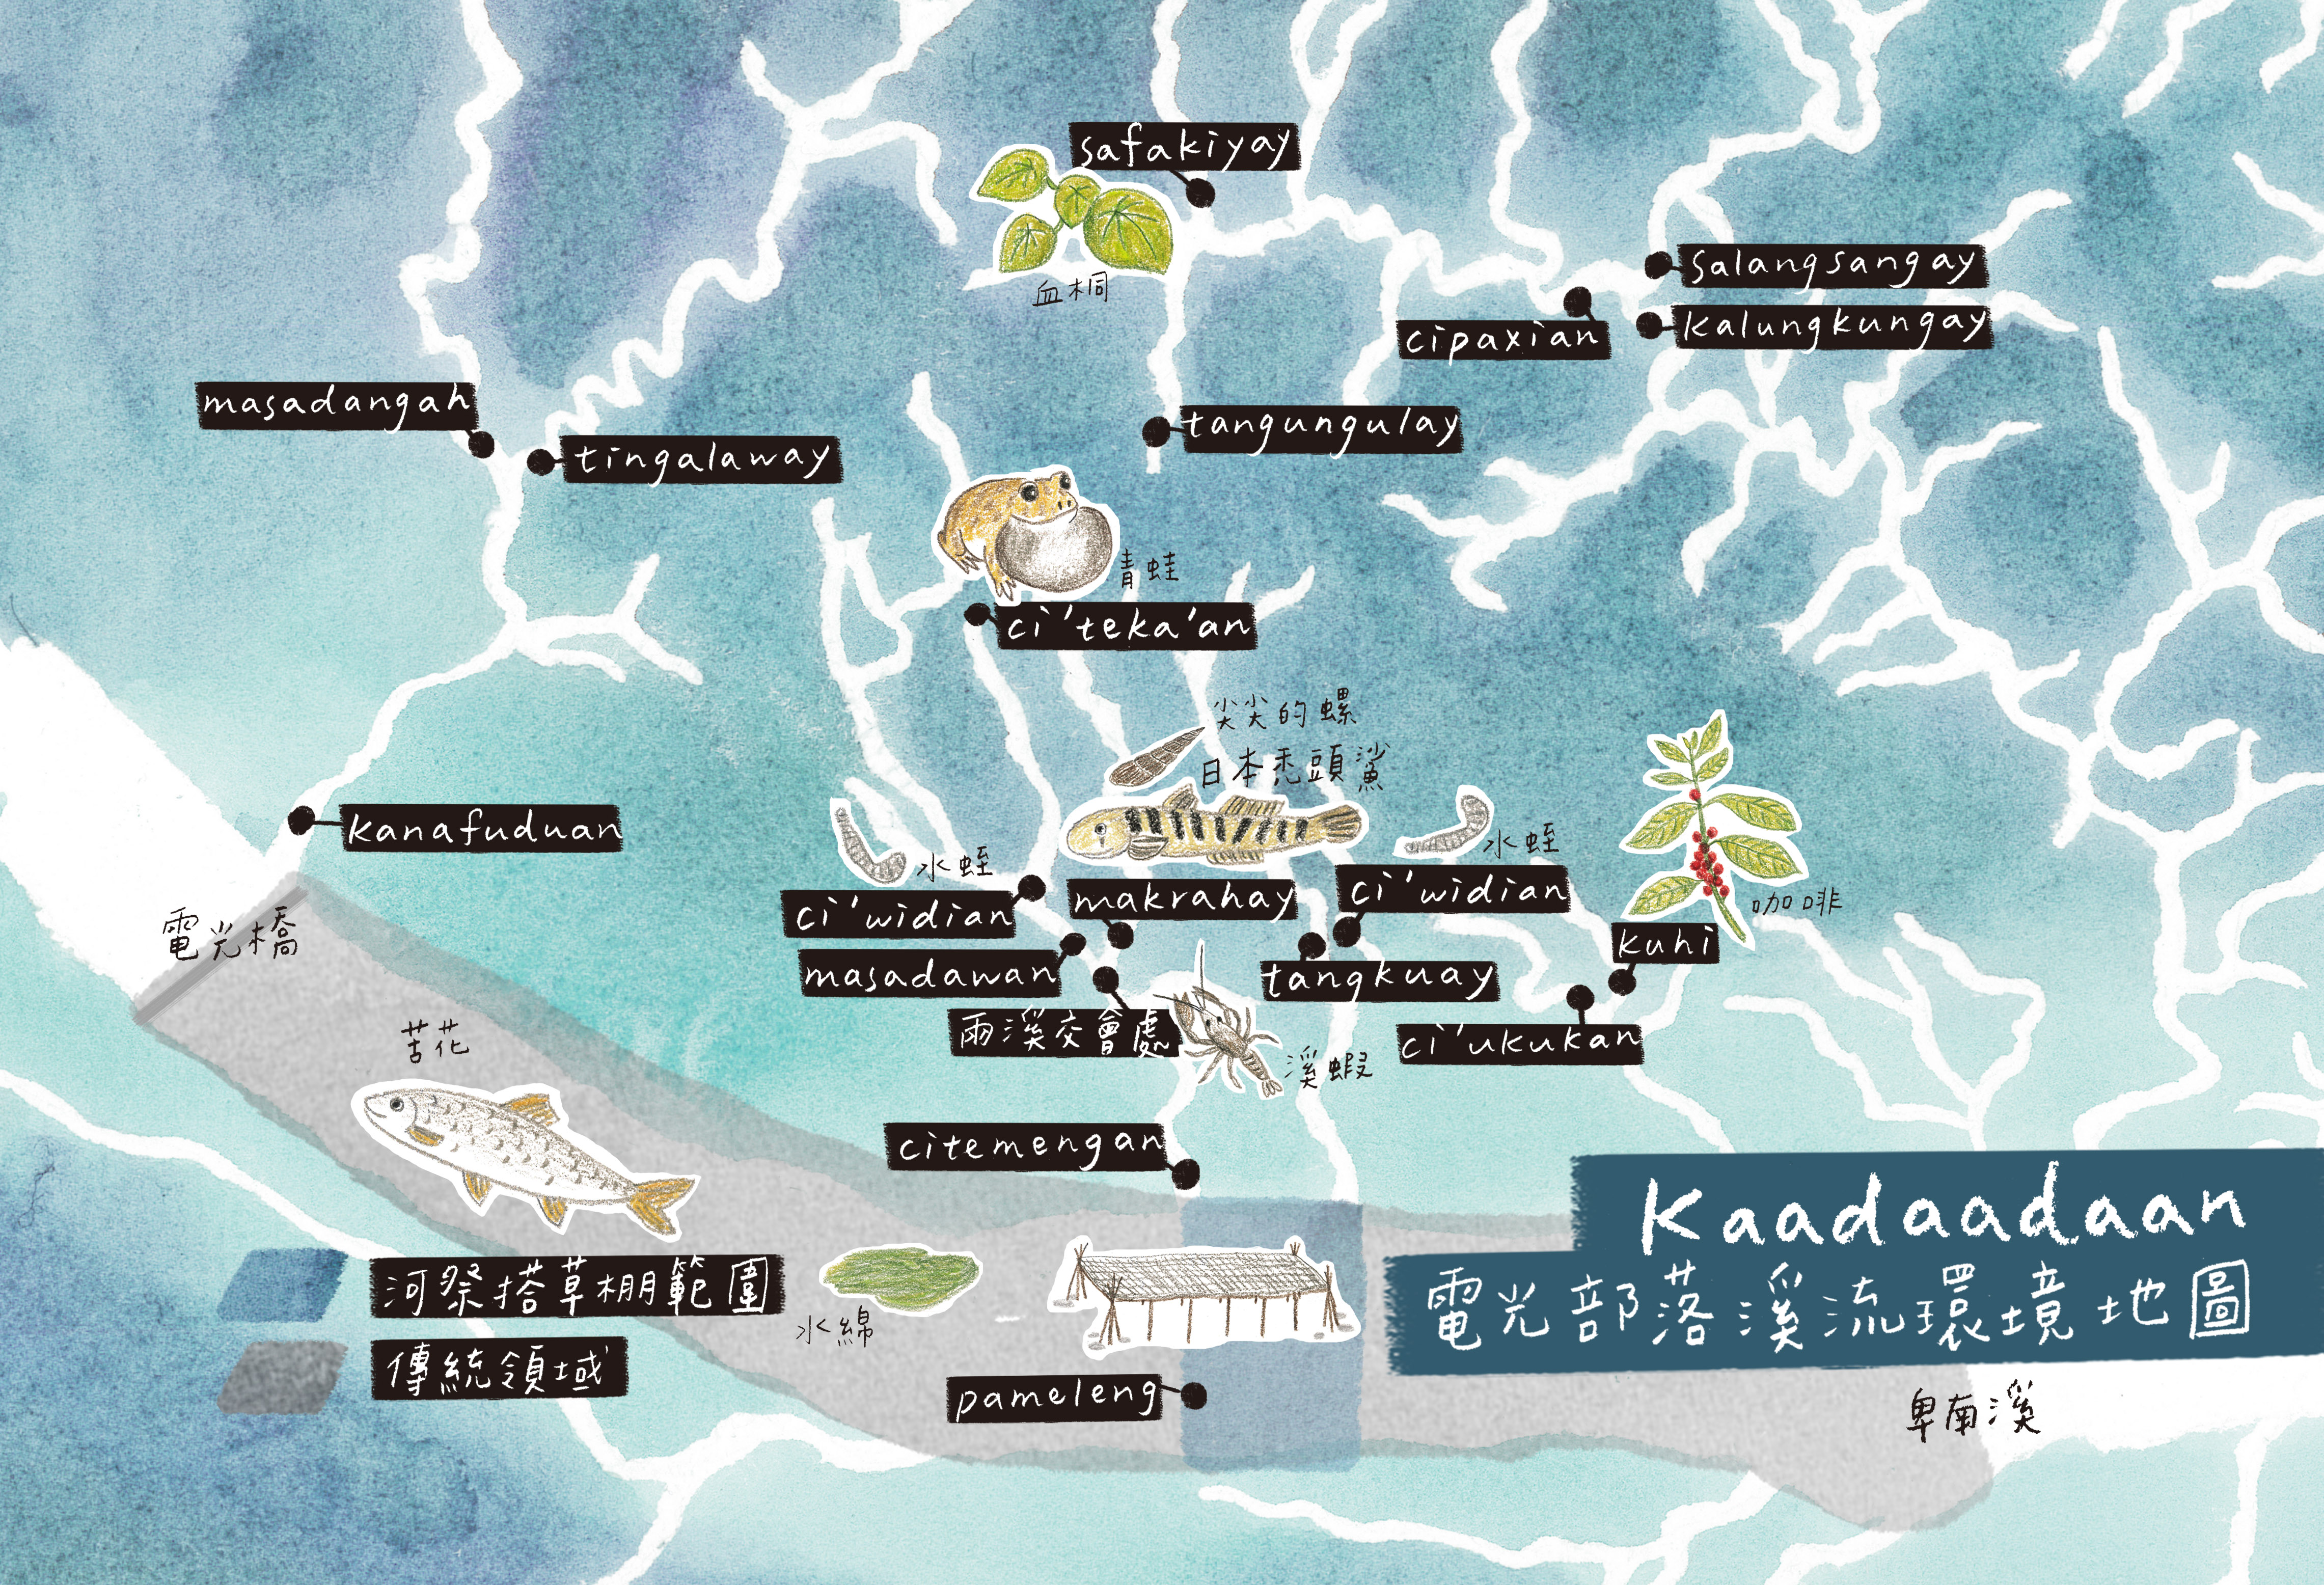 safakiyay
血桐
salangsangay
cipaxian
kalungkungay
masadangah
tingalaway
tangungulay
青蛙
ci'teka'an
尖尖的螺
日本禿頭鯊
kanafuduan
水蛭
水蛭
咖啡
ci'widian
makrahay
ci'widian
電光橋
kuhi
masadawan
tangkuay
兩溪交會處
溪蝦
ci'ukukan
苦花
citemengan
Kaadaadaan
電光部落溪流環境地圖
河祭搭草棚範圍
水綿
傳統領域
pameleng
卑南溪